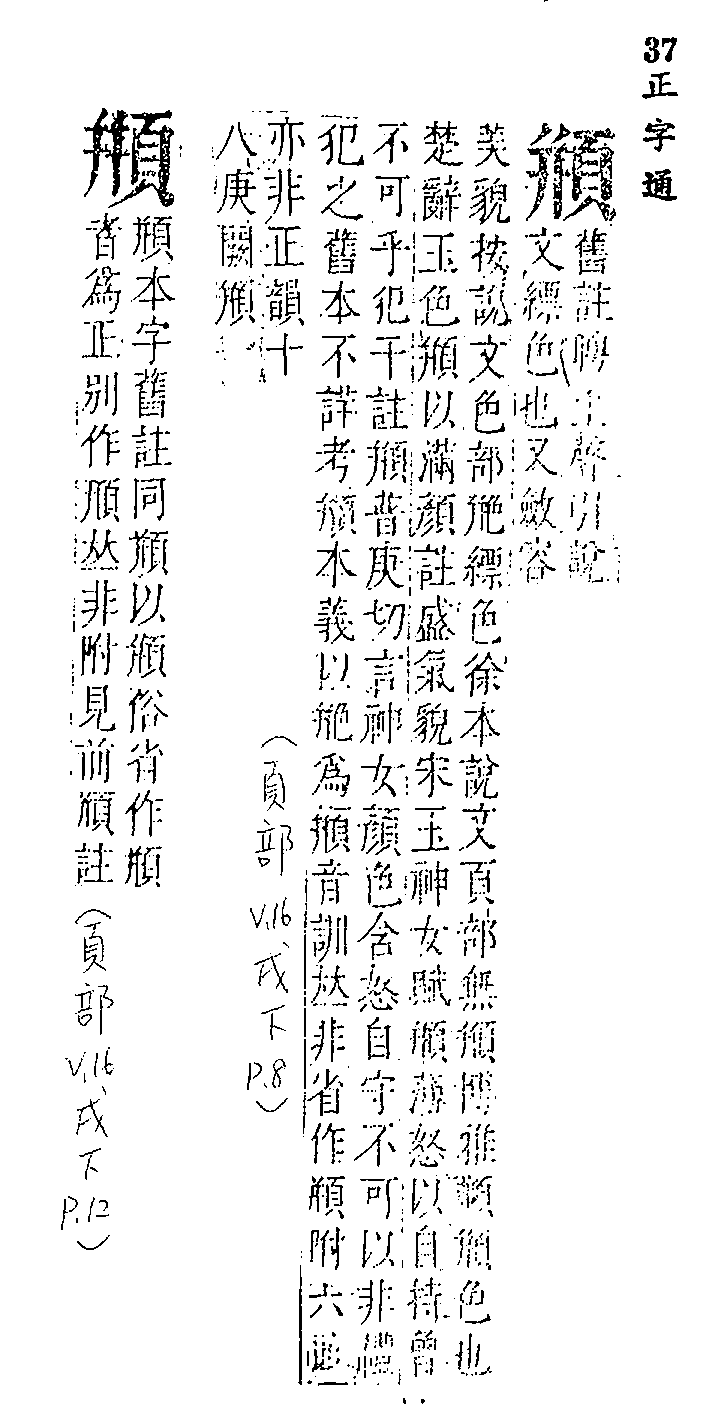 37 正字通
頩
舊註聘上聲引說
文縹色也又斂容
美貌按說文色部艵縹色徐本說文頁部無頩博雅頩頩色也
楚辭玉色頩以滿顏註盛氣貌宋玉神女賦頩薄怒以自持曾
不可乎犯干註頩普庚切言神女顏色含怒自守不可以非禮
犯之舊本不詳考頩本義以艵為頩音訓𠀤非省作頩附六畫
亦非正韻十
八庚闕頩
(頁部 V.16、戌下 P.8)
頩
頩本字舊註同頩以頩俗省作頩
者為正別作頩𠀤非附見前頩註
(頁部 V.16、戌下 P.12)